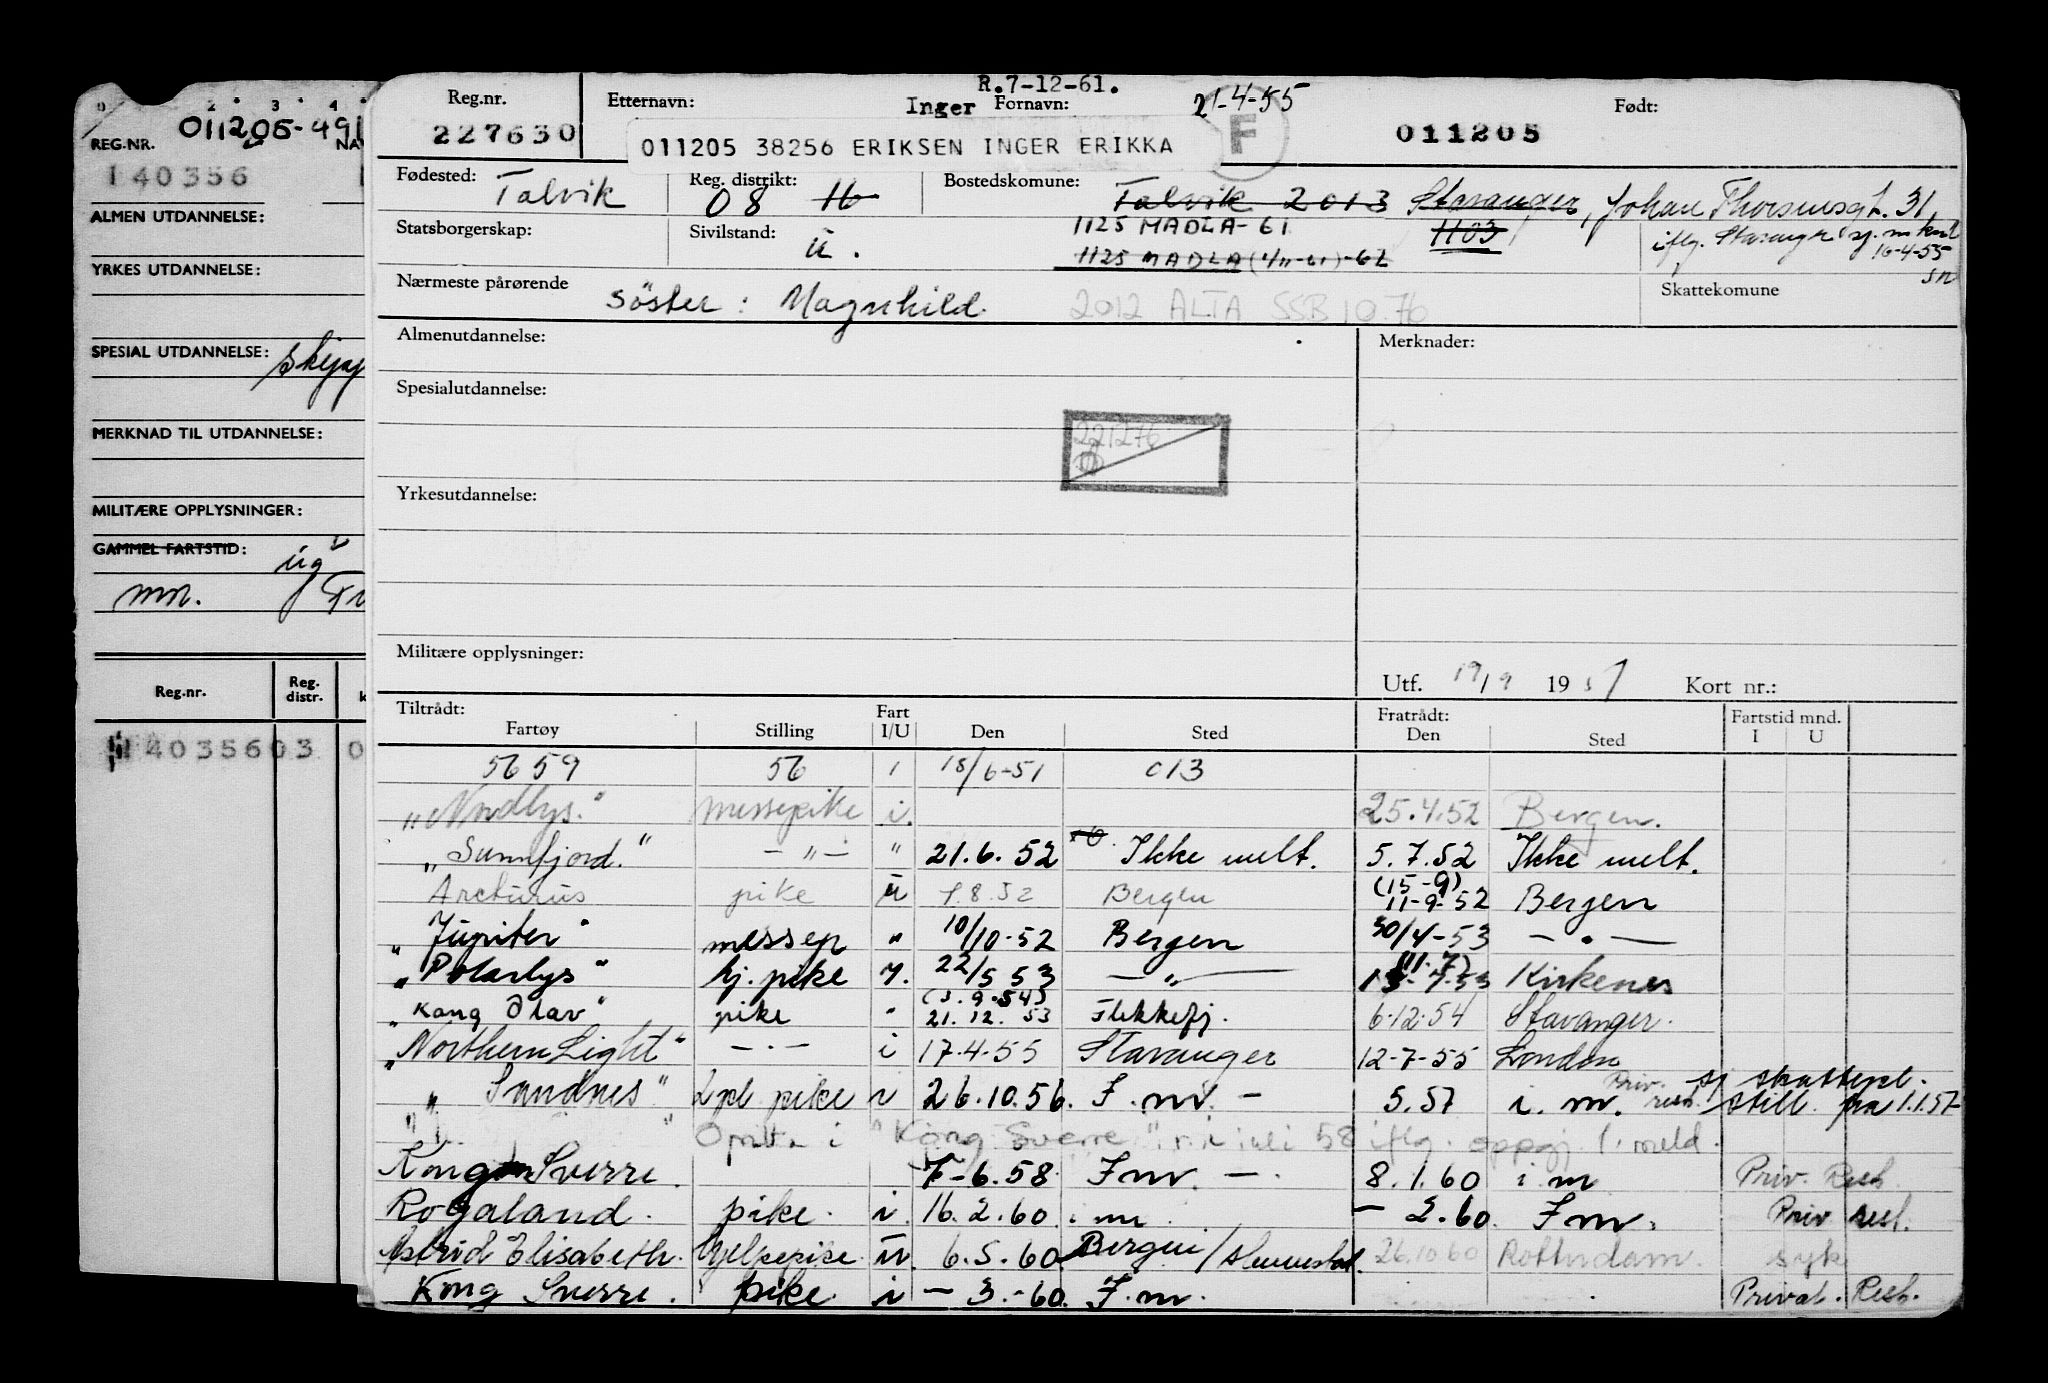 0 2 3 4
REG.NR. 011205-491 NA
140356
ALMEN UTDANNELSE:
YRKES UTDANNELSE:
SPESIAL UTDANNELSE:
MERKNAD TIL UTDANNELSE:
MILITÆRE OPPLYSNINGER:
GAMMEL FARTSTID:
mn.
Reg.nr. Reg. distr. k
4035603 0
R.7-12-61.
Reg.nr. Etternavn: Inger Fornavn: 21-4-55 Født:
227630 011205 38256 ERIKSEN INGER ERIKKA F 011205
Fødested: Talvik Reg. distrikt: 08 16 Bostedskomune: Talvik 2013 Stavanger, Johan Thorsensgt. 31,
Statsborgerskap: Sivilstand: u. 1125 MADLA-61 1103 iflg. Stavanger
16-4-55
1125 MADLA (1/11-61)-62 sn
Nærmeste pårørende søster: Magnhild. 2012 ALTA SSB 10.76 Skattekomune
Almenutdannelse: Merknader:
Spesialutdannelse:
221276
Yrkesutdannelse:
Militære opplysninger:
Utf. 19/9 1951 Kort nr.:
Tiltrådt: Fart Fratrådt: Fartstid mnd.
Fartøy Stilling I/U Den Sted Den Sted I U
5659 56 1 18/6-51 013
"Nordlys." messepike i. 25.4.52 Bergen.
"Sunnfjord." —"— " 21.6.52 Ikke melt. 5.7.52 Ikke melt.
Arcturus pike u 7.8.52 Bergen (15-9) 11-9-52 Bergen
"Jupiter" messep " 10/10-52 Bergen 30/4-53 —"—
"Polarlys" hj.pike i. 22/5 53 —"— (11.7) 13-7-53 Kirkenes
"Kong Olav" pike " (3.9.54) 21.12.53 Flekkefj. 6-12-54 Stavanger.
"Northern Light" —"— i 17-4-55 Stavanger 12-7-55 London
" Sandnes" pike i 26.10.56. I.m. — 5.57 i.m. Priv. resh. still. fra 1.1.57
i "Kong Sverre" juli 58 iflg. oppgj. meld.
Kong Sverre. 7-6.58. I m. —. 8.1.60 i m Priv. Resh.
Rogaland. pike. i. 16.2.60. i m — 2.60. I m. Priv resh.
Astrid Elisabeth. Hjelpepike. u. 6.5.60 Bergen/Slemmestad. 26.10 60 Rotterdam. syk
Kong Sverre. pike. i — 3.-60. I.m. Privat. Resh.